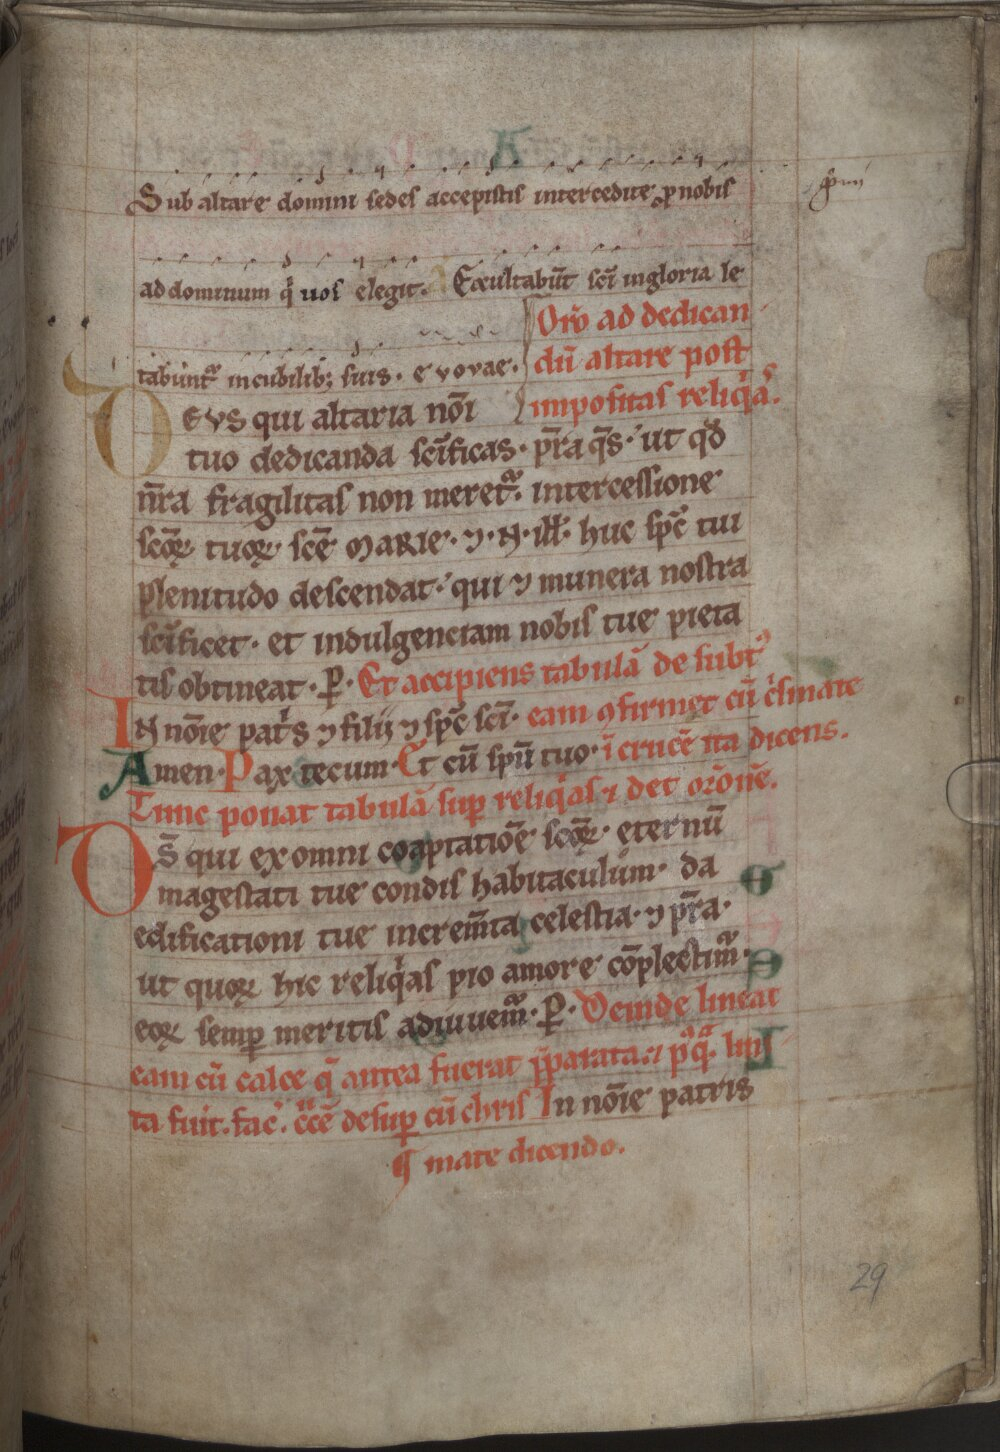 Sub altare domini sedes accepistis intercedite ꝓ nobis
ad dominum q̇ uos elegit. Exultabūt sc̄i in gloria le
Or̄o ad dedican
dū altare post
impositas reliq̇as.
tabunt᷑ in cubilib; suis. evovae.
DEVS qui altaria nōi
tuo dedicanda sc̄ificas. p̄ra q̄s. ut qd̄
n̄ra fragilitas non meret᷑. intercessione
sc̄oꝝ tuoꝝ sc̄e MARIE. ⁊. N. ill̄. huc sp̄c tui
plenitudo descendat. qui ⁊ munera nostra
sc̄ificet. et indulgenciam nobis tue pieta
tis obtineat. P̄. Et accipiens tabulā de subt᷒
IN nōie pat̓s ⁊ filij ⁊ sp̄c sc̄i. eam ꝯfirmet cū c̓smate
Amen. Pax tecum. Et cū sp̄u tuo. ī crucē ita dicens.
Tunc ponat tabulā suꝑ reliq̇as ⁊ det or̄onē.
DS̄ qui ex omni coaptatiōe sc̄oꝝ eternū
magestati tue condis habitaculum. da
edificationi tue increm̄ta celestia. ⁊ p̄ra.
ut quoꝝ hic reliq̇as pio amore cōplectim᷑.
eoꝝ semꝑ meritis adiuuem᷑. P̄. Deinde lineat
eam cū calce q̄ antea fuerat p̄parata. ⁊ pq̇̄ᵃ. lini
ta fuit. fac̓. c̄cē desuꝑ cū chris In nōie patris
¶ mate dicendo.
29